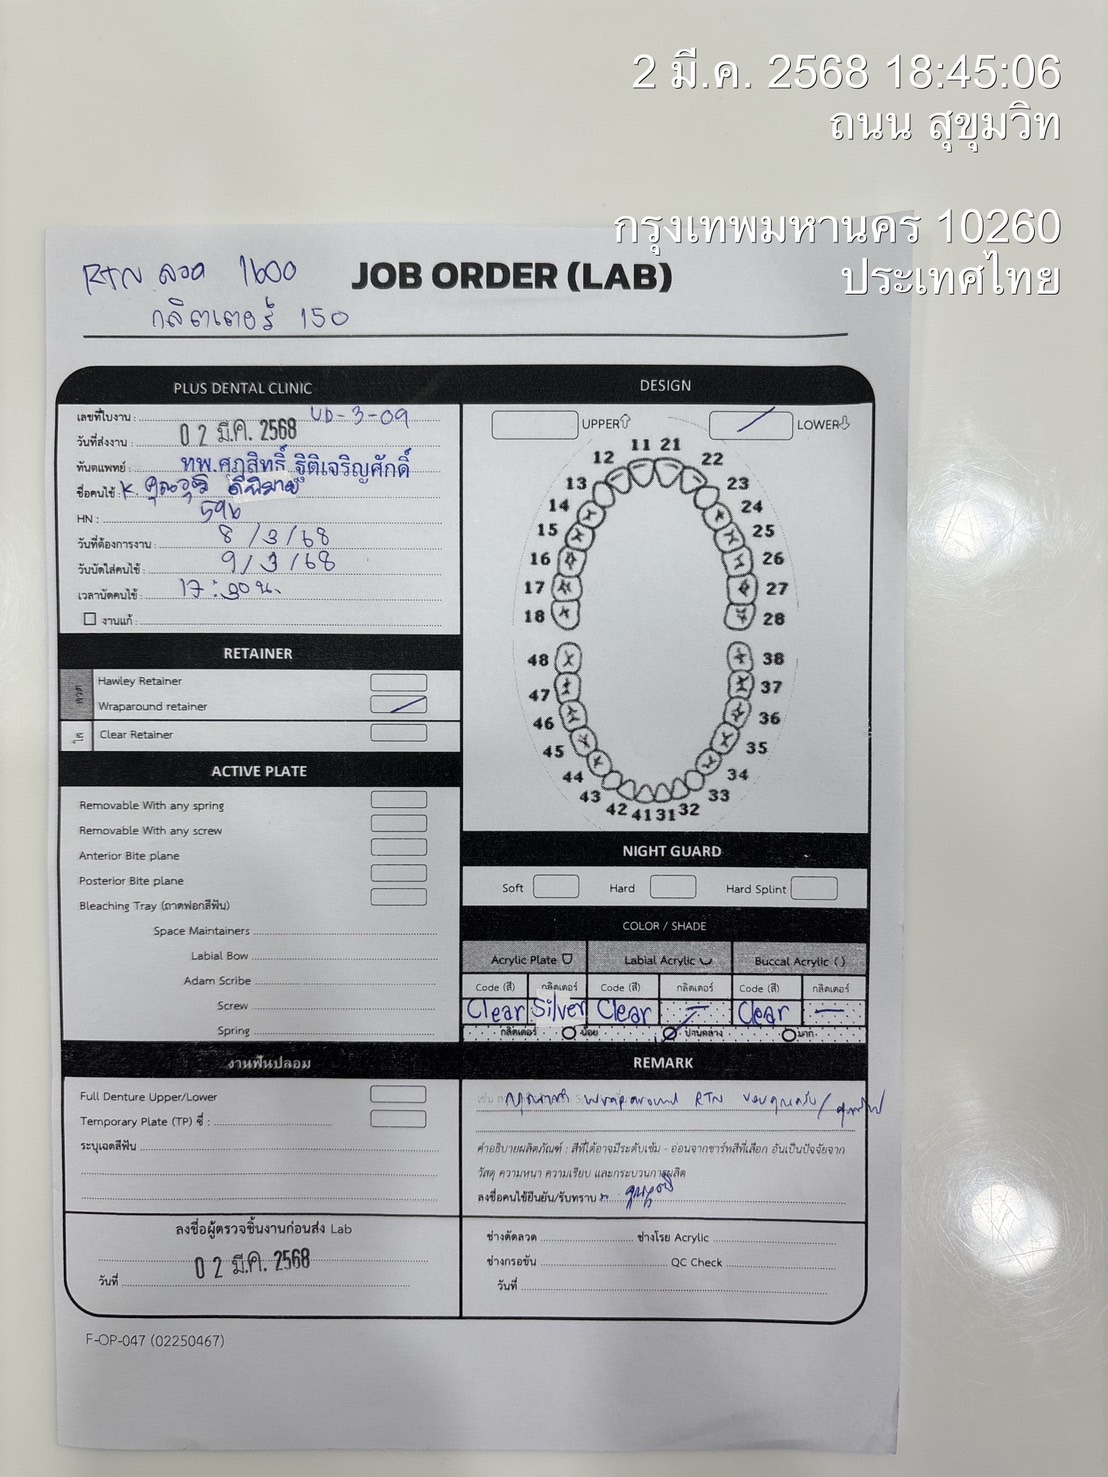 2 มี.ค. 2568 18:45:06
ถนน สุขุมวิท
กรุงเทพมหานคร 10260
ประเทศไทย
RTN ลวด 1600
กลิตเตอร์ 150
JOB ORDER (LAB)
PLUS DENTAL CLINIC
เลขที่ใบงาน : UD-3-09
วันที่ส่งงาน : 02 มี.ค. 2568
ทันตแพทย์ : ทพ.ศุภสิทธิ์ ฐิติเจริญศักดิ์
ชื่อคนไข้ : K.
HN : 596
วันที่ต้องการงาน : 8/3/68
วันนัดใส่คนไข้ : 9/3/68
เวลานัดคนไข้ : 17:30 น.
งานแก้ :
RETAINER
ลวด
Hawley Retainer
Wraparound retainer
ใส
Clear Retainer
ACTIVE PLATE
Removable With any spring
Removable With any screw
Anterior Bite plane
Posterior Bite plane
Bleaching Tray (ถาดฟอกสีฟัน)
Space Maintainers
Labial Bow
Adam Scribe
Screw
Spring
งานฟันปลอม
Full Denture Upper/Lower
Temporary Plate (TP) ซี่ :
ระบุเฉดสีฟัน
ลงชื่อผู้ตรวจชิ้นงานก่อนส่ง Lab
วันที่ 02 มี.ค. 2568
DESIGN
UPPER LOWER
11 21
12 22
13 23
14 24
15 25
16 26
17 27
18 28
48 38
47 37
46 36
45 35
44 34
43 33
42 41 31 32
NIGHT GUARD
Soft Hard Hard Splint
COLOR / SHADE
Acrylic Plate Labial Acrylic Buccal Acrylic ( )
Code (สี) กลิตเตอร์ Code (สี) กลิตเตอร์ Code (สี) กลิตเตอร์
Clear Silver Clear - Clear -
กลิตเตอร์ น้อย ปานกลาง มาก
REMARK
wraparound RTN ขอบคุณครับ/
คำอธิบายผลิตภัณฑ์ : สีที่ได้อาจมีระดับเข้ม - อ่อนจากชาร์ทสีที่เลือก อันเป็นปัจจัยจาก
วัสดุ ความหนา ความเรียบ และกระบวนการผลิต
ลงชื่อคนไข้ยืนยัน/รับทราบ
ช่างดัดลวด ช่างโรย Acrylic
ช่างกรอขัน QC Check
วันที่
F-OP-047 (02250467)